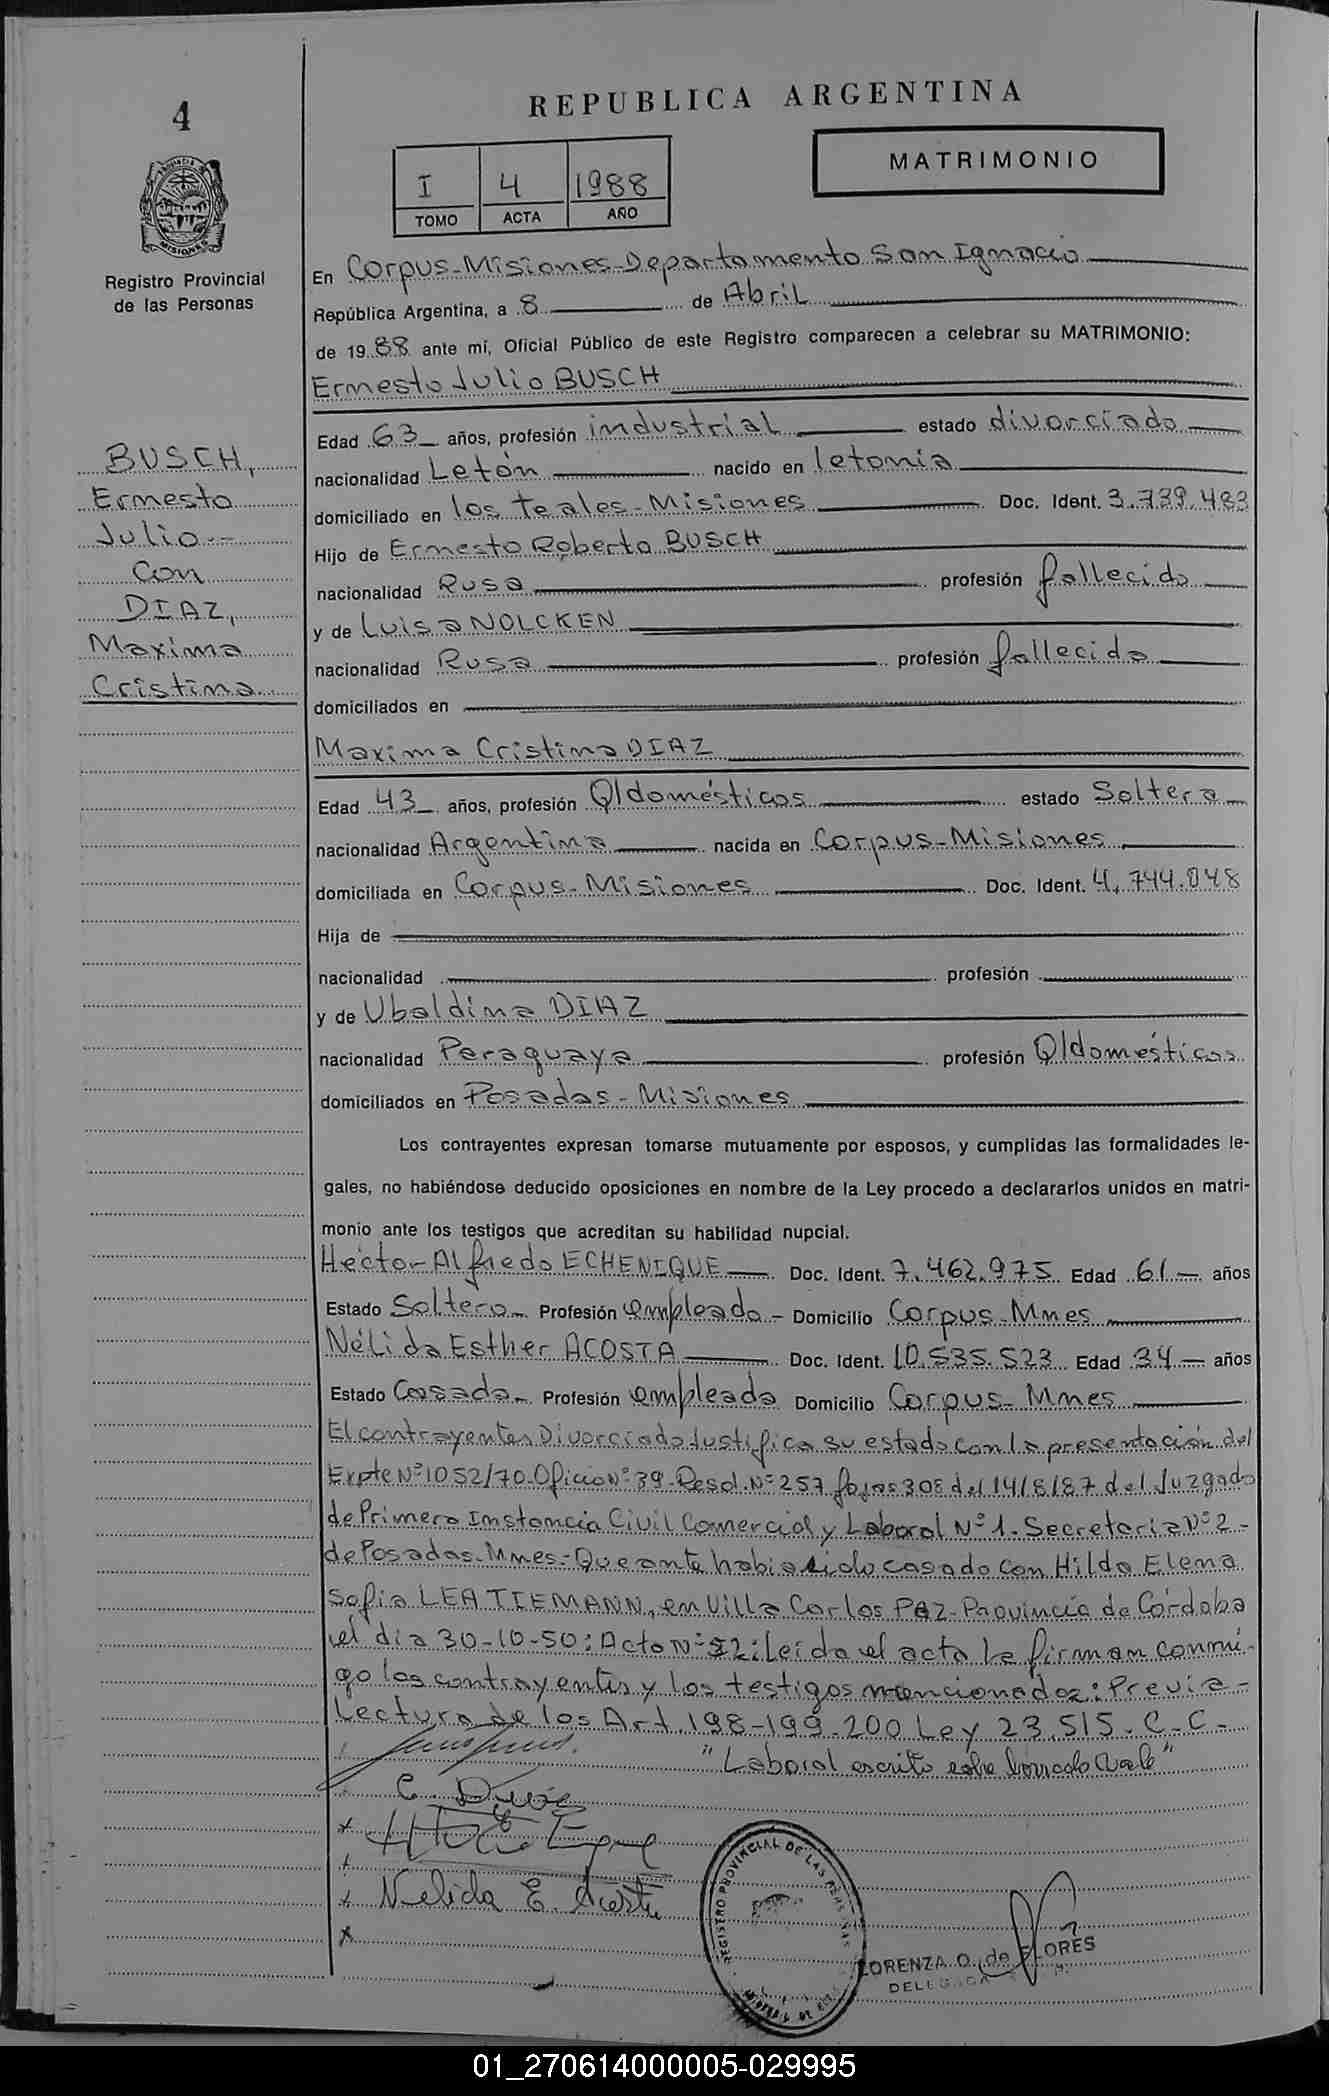 4
REPUBLICA ARGENTINA
MATRIMONIO
I 4 1988
TOMO ACTA AÑO
PROVINCIA
MISIONES
Registro Provincial
de las Personas
En Corpus-Misiones-Departamento San Ignacio
República Argentina, a 8 de Abril
de 1988 ante mí, Oficial Público de este Registro comparecen a celebrar su MATRIMONIO:
Ernesto Julio BUSCH
Edad 63 años, profesión industrial estado divorciado
BUSCH,
Ernesto
Julio.-
Con
DIAZ,
Maxima
Cristina
nacionalidad Letón nacido en letonia
domiciliado en los teales-Misiones Doc. Ident. 3.739.483
Hijo de Ernesto Roberto BUSCH
nacionalidad Rusa profesión fallecido
y de Luisa NOLCKEN
nacionalidad Rusa profesión fallecida
domiciliados en
Maxima Cristina DIAZ
Edad 43 años, profesión Q/domésticos estado Soltera
nacionalidad Argentina nacida en Corpus-Misiones
domiciliada en Corpus-Misiones Doc. Ident. 4.744.048
Hija de
nacionalidad profesión
y de Ubaldina DIAZ
nacionalidad Paraguaya profesión Q/domésticos
domiciliados en Posadas-Misiones
Los contrayentes expresan tomarse mutuamente por esposos, y cumplidas las formalidades le-
gales, no habiéndose deducido oposiciones en nombre de la Ley procedo a declararlos unidos en matri-
monio ante los testigos que acreditan su habilidad nupcial.
Héctor Alfredo ECHENIQUE Doc. Ident. 7.462.975 Edad 61 años
Estado Soltero Profesión empleado Domicilio Corpus-Mnes
Nélida Esther ACOSTA Doc. Ident. 10.535.523 Edad 34 años
Estado Casada Profesión empleada Domicilio Corpus-Mnes
El contrayente Divorciado Justifica su estado con la presentación del
Expte Nº 1052/70. Oficio Nº 39-Resol. Nº 257 fojas 308 del 14/8/87 del Juzgado
de Primera Instancia Civil Comercial y Laboral Nº 1. Secretaria Nº 2-
de Posadas-Mnes-Que ante habia sido casado con Hilda Elena
Sofia LEA TIEMANN, en Villa Carlos PAZ-Provincia de Córdoba
el dia 30-10-50: Acta Nº 52: Leida el acta la firman conmi-
go los contrayentes y los testigos mencionados: Previa-
Lectura de los Art. 198-199-200 Ley 23.515. C-C-
"Laboral escrito sobre borrado Vale"
Nelida E. Acosta
REGISTRO PROVINCIAL DE LAS PERSONAS
LORENZA O. de FLORES
DELEGADA
01_270614000005-029995